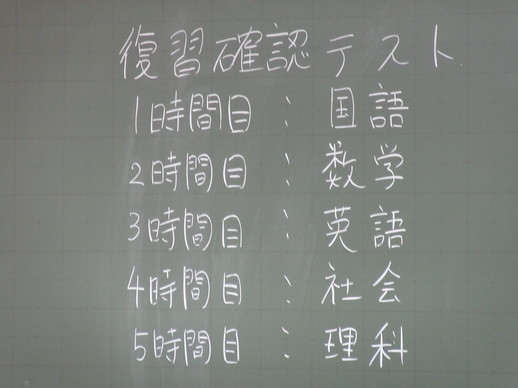 復習確認テスト
1時間目：国語
2時間目：数学
3時間目：英語
4時間目：社会
5時間目：理科